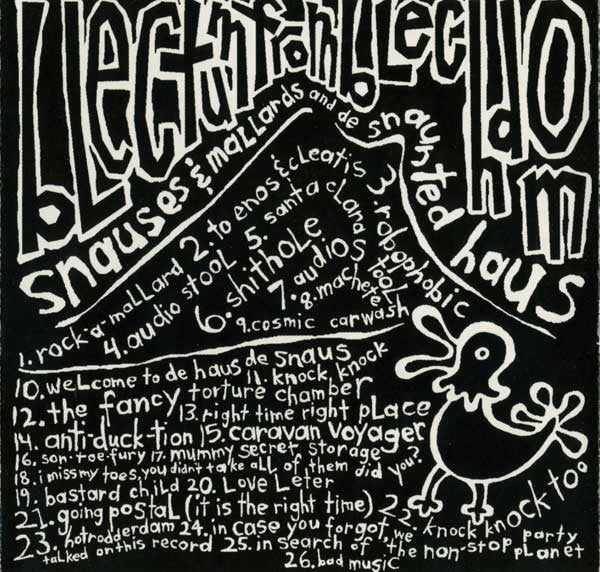 bLectum from bLechdom
snauses & mallards and de snaunted haus
1. rock-a-mallard 2. to enos & cleatis 3. robophobic
4. audio stool 5. santa clana
6. shithole
7. audios tool
8. machete
9. cosmic carwash
10. weLcome to de haus de snaus
11. knock knock
12. the fancy torture chamber
13. right time right pLace
14. anti-duck-tion 15. caravan voyager
16. son-toe-fury 17. mummy secret storage
18. i miss my toes, you didn't take aLL of them did you?
19. bastard chiLd 20. Love Leter
21. going postaL (it is the right time) 22. knock knock too
23. hotrodderdam 24. in case you forgot, we talked on this record 25. in search of the non-stop party pLanet
26. bad music